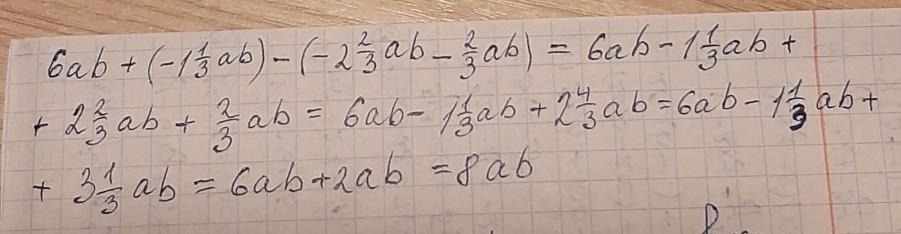 6ab + (-1 1/3 ab) - (-2 2/3 ab - 2/3 ab) = 6ab - 1 1/3 ab +
+ 2 2/3 ab + 2/3 ab = 6ab - 1 1/3 ab + 2 4/3 ab = 6ab - 1 1/3 ab +
+ 3 1/3 ab = 6ab + 2ab = 8ab